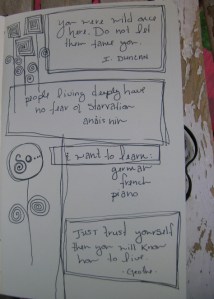 you were wild once
here. Do not let
them tame you.
I. DUNCAN
people living deeply have
no fear of starvation
anais nin
So...
I want to learn:
german
french
piano
JUST trust yourself
then you will know
how to live.